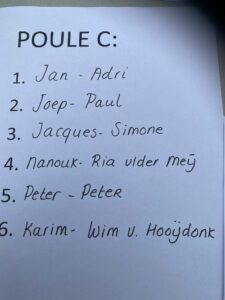 POULE C:
1. Jan - Adri
2. Joep - Paul
3. Jacques - Simone
4. Manouk - Ria vlder Meÿ
5. Peter - Peter
6. Karim - Wim v. Hooÿdonk